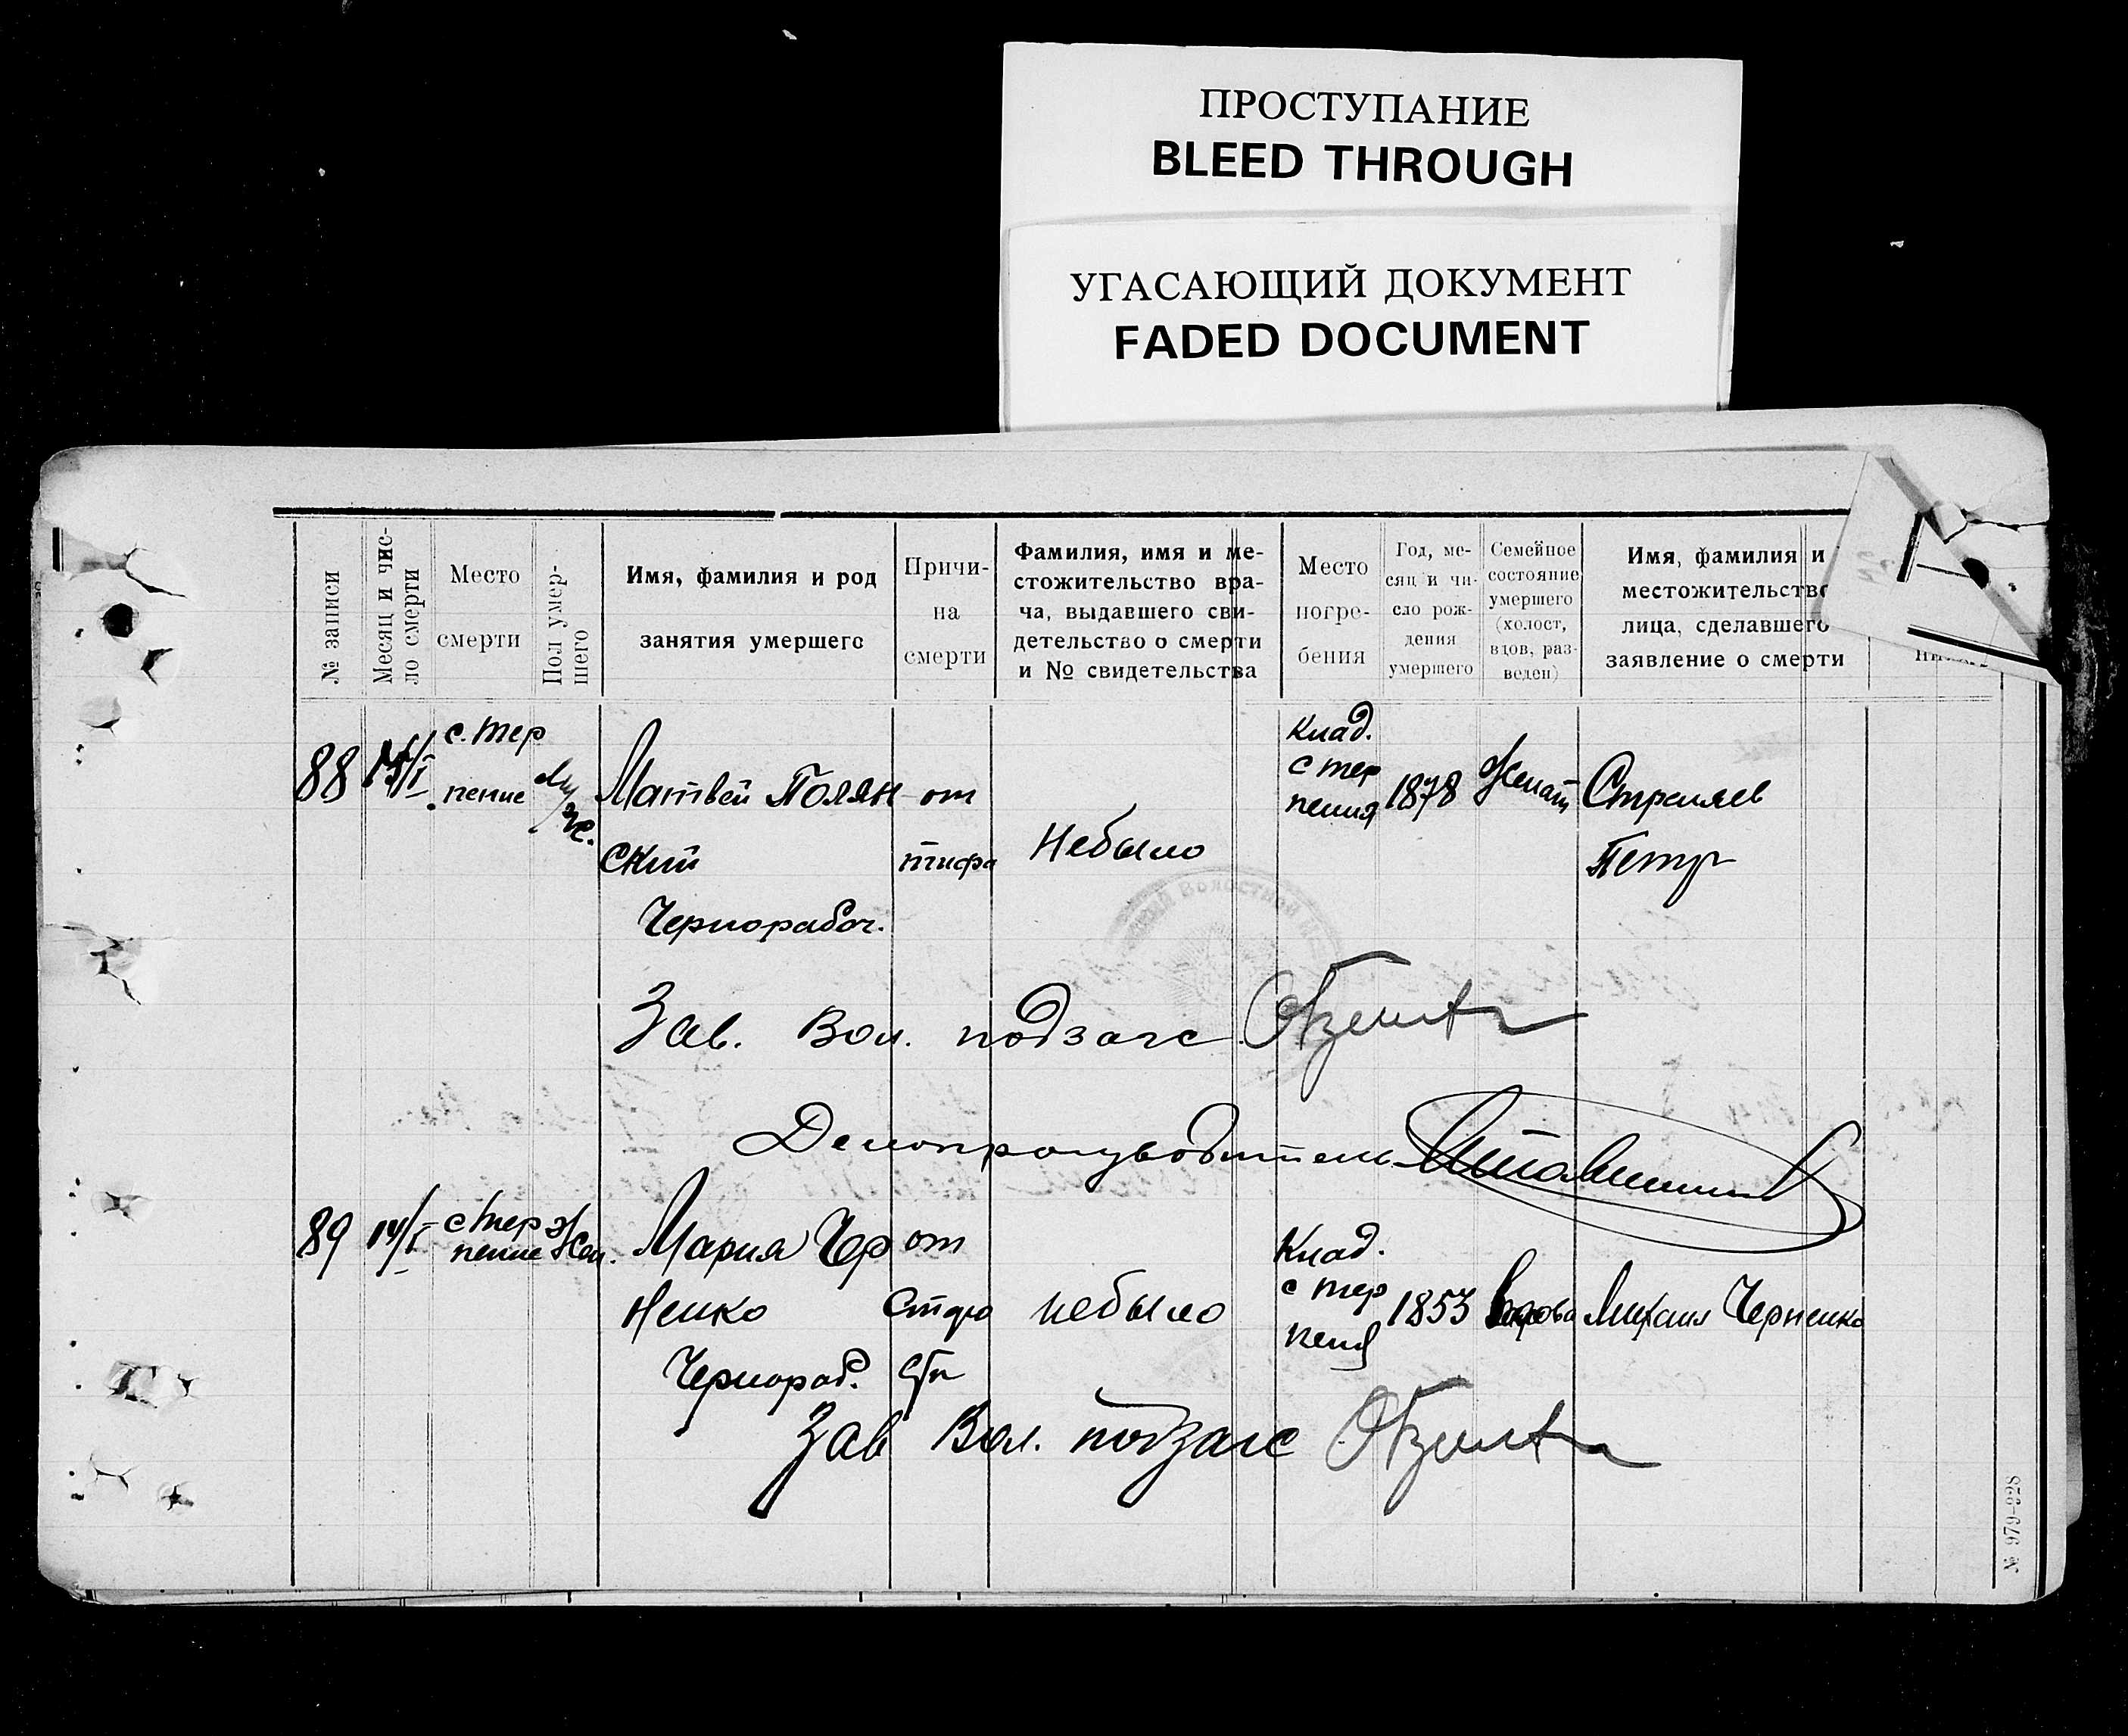 ПРОСТУПАНИЕ
BLEED THROUGH
УГАСАЮЩИЙ ДОКУМЕНТ
FADED DOCUMENT
№ записи
Месяц и чис-
ло смерти
Место
смерти
Пол умер-
шего
Имя, фамилия и род
занятия умершего
Причи-
на
смерти
Фамилия, имя и ме-
стожительство вра-
ча, выдавшего сви-
детельство о смерти
и № свидетельства
Место
погре-
бения
Год, ме-
сяц и чи-
сло рож-
дения
умершего
Семейное
состояние
умершего
(холост,
вдов, раз-
веден)
Имя, фамилия и
местожительство
лица, сделавшего
заявление о смерти
88
с. Тер
пение
Муж.
Матвей Полян
ский
Чернорабоч.
от
тифа
Небыло
Клад.
с тер
пения
1878
Женат
Стреляев
Петр
Волостной
Зав. Вол. подзагс
Делопроизводитель
89
14/I
с Тер
пение
Жен.
Мария Чер
ненко
Чернораб.
от
старо
сти
небыло
Клад.
с тер
пения
1853
Вдова
Михаил Черненко
Зав Вол. подзагс
№ 979-928